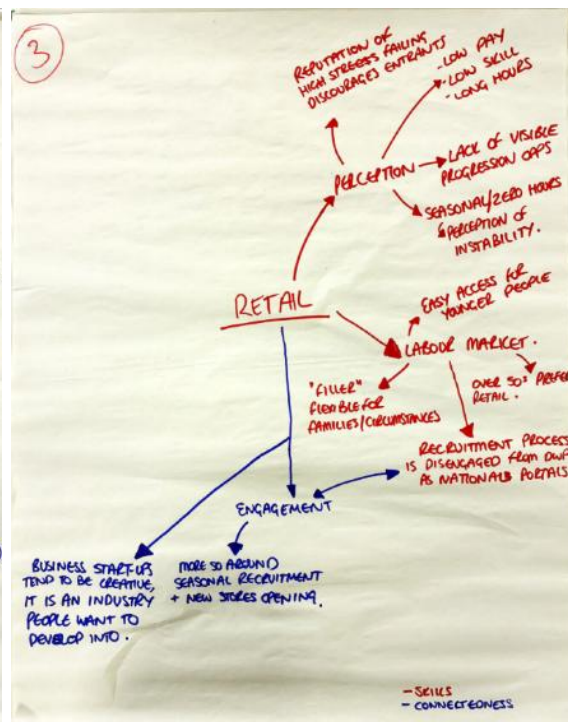 3
REPUTATION OF
HIGH STREETS FAILING
DISCOURAGES ENTRANTS
- LOW PAY
- LOW SKILL
- LONG HOURS
PERCEPTION
LACK OF VISIBLE
PROGRESSION OPPS
SEASONAL/ZERO HOURS
& PERCEPTION OF
INSTABILITY.
RETAIL
EASY ACCESS FOR
YOUNGER PEOPLE
LABOUR MARKET.
"FILLER"
FLEXIBLE FOR
FAMILIES/CIRCUMSTANCES
OVER 50s PREFER
RETAIL.
RECRUITMENT PROCESS
IS DISENGAGED FROM DWP
AS NATIONAL PORTALS
ENGAGEMENT
BUSINESS START-UPS
TEND TO BE CREATIVE,
IT IS AN INDUSTRY
PEOPLE WANT TO
DEVELOP INTO.
MORE SO AROUND
SEASONAL RECRUITMENT
+ NEW STORES OPENING.
- SKILLS
- CONNECTEDNESS